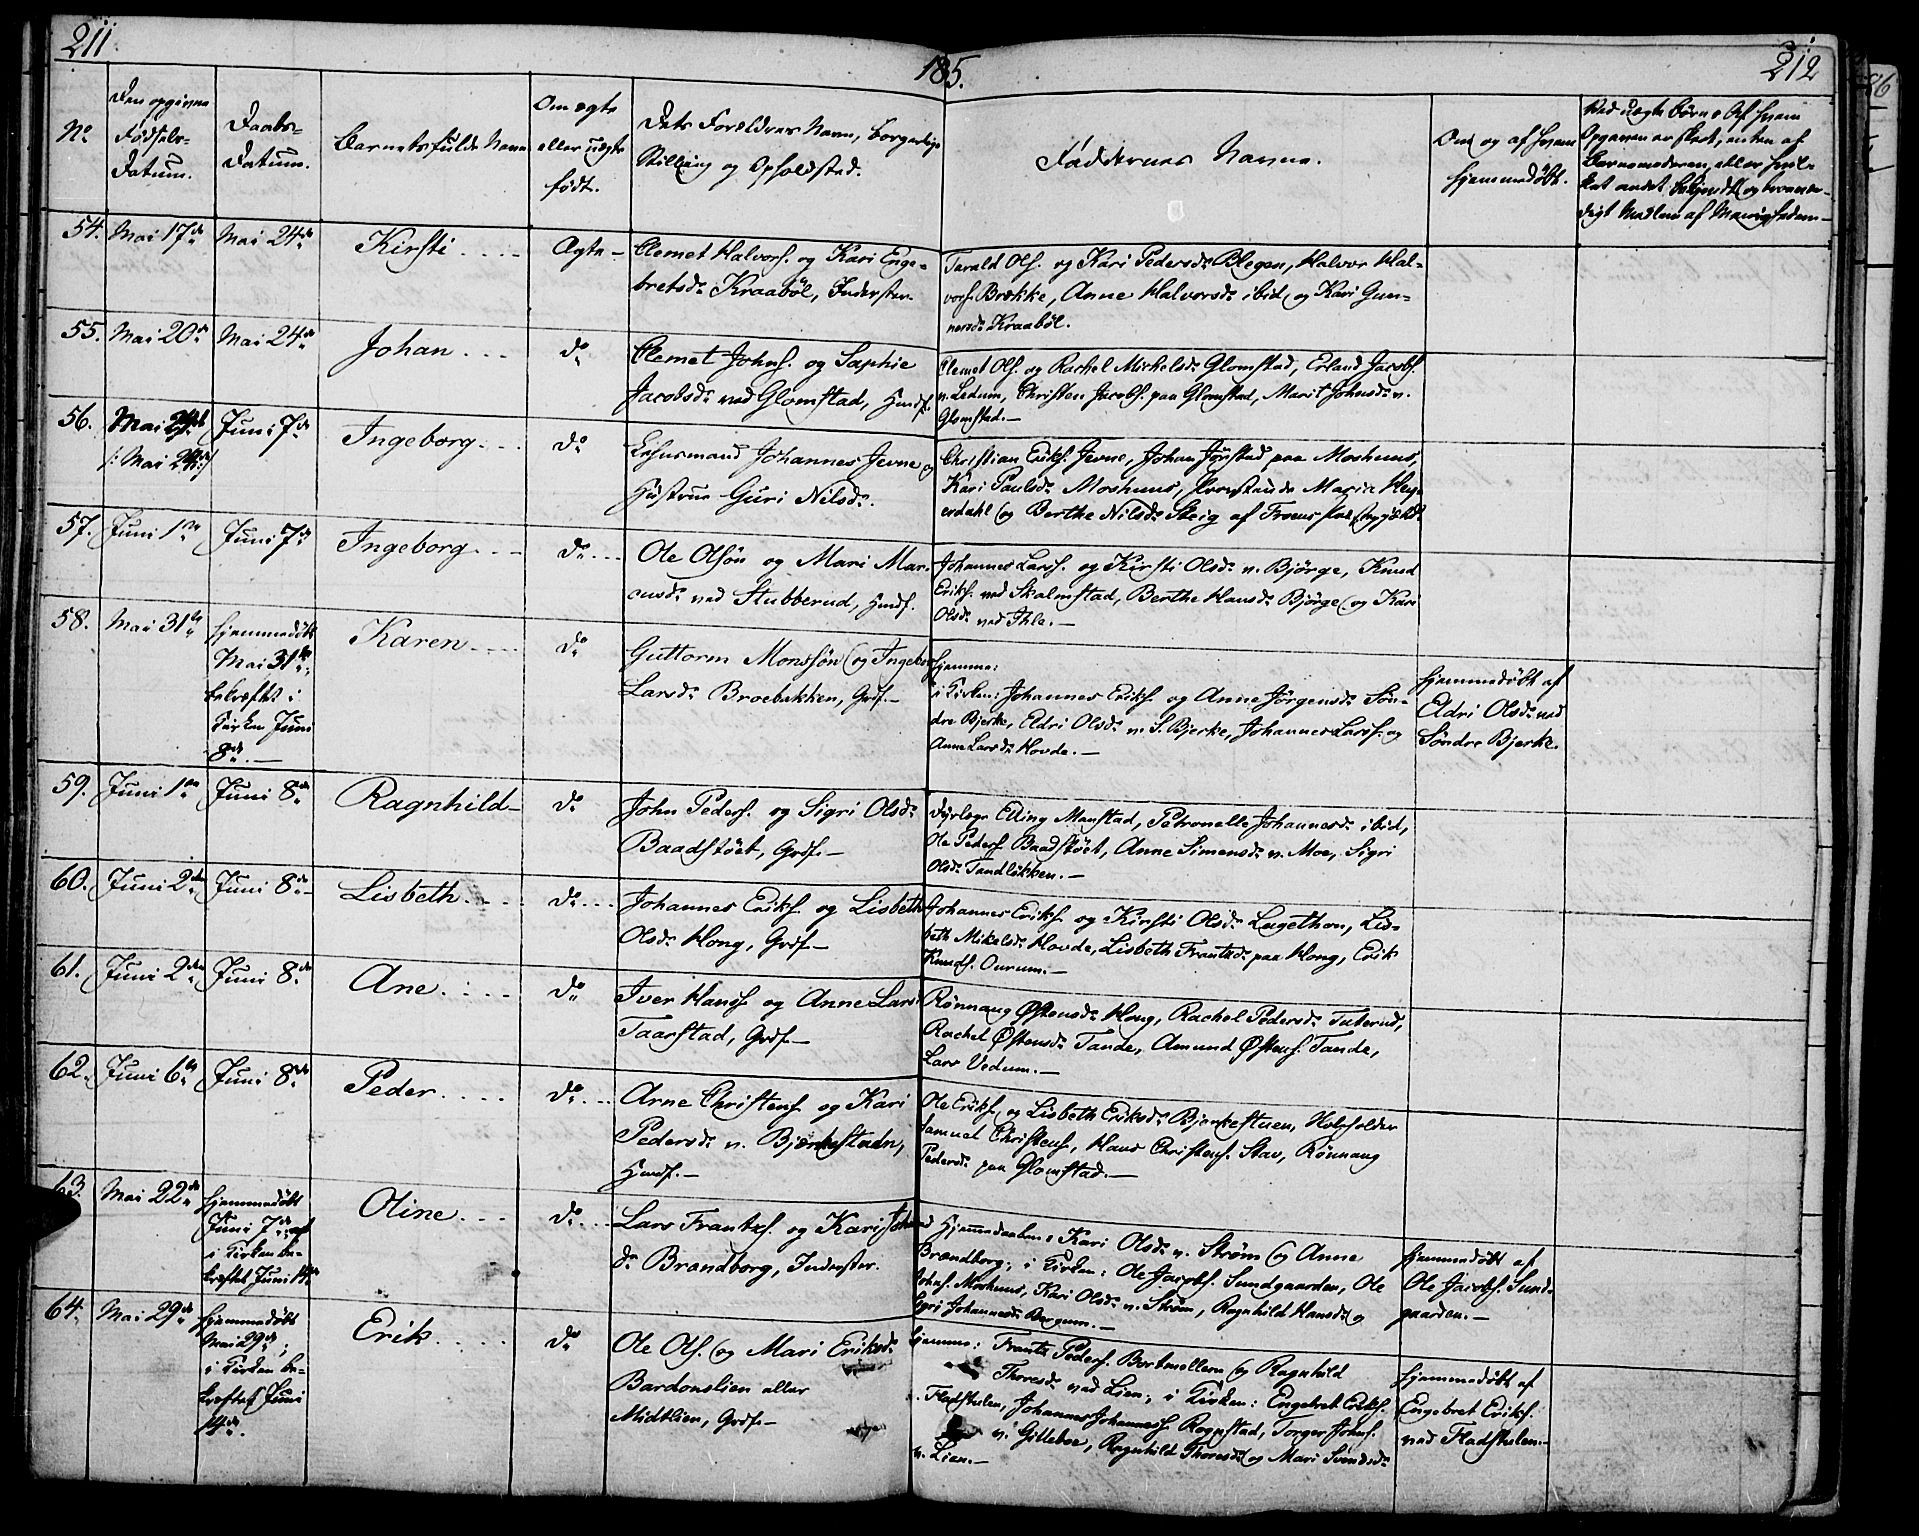 211
185.
212
No
Den opgivne
Fødsels-
Datum.
Daabs-
Datum.
Barnets fulde Navn
Om ægte
eller uægte
født.
Dets Forældres Navn, borgerlige
Stilling og Opholdsted.
Faddernes Navne.
Om og af hvem
hjemmedøbt.
Ved uægte Børn: Af hvem
Opgaven er skeet, enten af
Barnemoderen, eller hvil-
ket andet bekjendt og troevær-
digt Medlem af Menigheden
54. Mai 17de Mai 24de Kirsti .... Ægte -
Clemet Halvors. og Kari Enge-
bretsdr Kraabøl, Inderster.
Tarald Ols. og Kari Pedersdr Blegen, Halvor Hal-
vors. Brække, Anne Halvorsdr ibid og Kari Gun-
nersdr Kraabøl.
55. Mai 20de Mai 24de Johan ... do
Clemet Johns. og Saphie
Jacobsdr ved Glomstad, Husf.
Clemet Ols. og Rachel Mickelsdr Glomstad, Erland Jacobs.
v. Ledum, Christen Jacobs. paa Glomstad, Marit Johnsdr v.
Glomstad. -
56. Juni 7de Ingeborg ... do
/: Mai 24de :/
Lehnsmand Johannes Jevne og
Hustrue Guri Nilsdr.
Christian Eriks. Jevne, Johan Jørstad paa Moshuus,
Kari Paulsdr Moshuus, Maria Hei-
erdahl og Berthe Nilsdr Steig af Froens
57. Juni 1ste Juni 7de Ingeborg ... do ...
Ole Olsøn og Mari Mar-
cusdr ved Stubberud, Husf.
Johannes Larss. og Kirsti Olsdr v. Bjørge, Knud
Eriks. ved Skalmstad, Berthe Hansdr Bjørge og Kari
Olsdr ved Ihle. -
58. Mai 31te
hjemmedøbt
Mai 31te,
bekræftet i
Kirken Juni
8de. -
Karen .... do
Guttorm Monssøn og Ingeborg
Larsdr Broebakken, Grdf. -
hjemme:
i Kirken: Johannes Eriks. og Anne Jørgensdr Søn-
dre Bjerke, Eldri Olsdr v. S. Bjerke, Johannes Larss. og
Anne Larsdr Hovde. -
hjemmedøbt af
Eldri Olsdr ved
Søndre Bjerke.
59. Juni 1ste Juni 8de Ragnhild - do
John Peders. og Sigri Olsdr
Baadstøet, Grdf. -
Dyrlæge Elling Maustad, Petronelle Johannesdr ibid,
Ole Peders. Baadstøet, Anne Simensdr v. Moe, Sigri
Olsdr Sandløkken. -
60. Juni 2den Juni 8de - Lisbeth .... do ...
Johannes Eriks. og Lisbeth
Olsdr Hong, Grdf. -
Johannes Eriks. og Kirsti Olsdr Lugethon, Lis-
beth Mikelsdr Hovde, Lisbeth Frantsdr paa Hong, Erik
Knuds. Ourum. -
61. Juni 2den Juni 8de Ane .... do
Iver Hanss. og Anne Lars
Taarstad, Grdf. -
Rønnaug Østensdr Hong, Rachel Pedersdr Suterud,
Rachel Østensdr Tande, Amund Østens. Tande,
Lars Vedum. -
62. Juni 6te Juni 8de Peder .... do ...
Arne Christens. og Kari
Pedersdr v. Bjerkestuen,
Husf. -
Ole Eriks. og Lisbeth Eriksdr Bjerkestuen,
Samuel Christens., Hans Christens. Stav, Rønnaug
Pedersdr paa Glomstad. -
63. Mai 22de
hjemmedøbt
Juni 7de,
i Kirken be-
kræftet Juni 14de
Oline ... do ...
Lars Frantss. og Kari Johns
dr Brandborg, Inderster.
Hjemmedaaben: Kari Olsdr v. Strøm og Anne
Brandborg; i Kirken: Ole Jacobs. Sundgaarden, Ole
Johns. Moshuus, Kari Olsdr v. Strøm, Ragnhild Hansdr og
Sigri Johannesdr Bergum. -
hjemmedøbt af
Ole Jacobs. Sund-
gaarden. -
64. Mai 29de
hjemmedøbt
Mai 29de;
i Kirken be-
kræftet Juni
14de.
Erik .... do
Ole Ols. og Mari Eriksdr
Bardonslien eller
Midtlien, Grdf. -
hjemme: Frants Peders. Bortmollem og Ragnhild
Thoresdr ved Lien; i Kirken: Engebret Eriks.
v. Fladstulen, Johannes Johanness. Rognstad, Torger Johns.
v. Gilleboe, Ragnhild Thoresdr og Mari Svendsdr
v. Lien. -
hjemmedøbt af
Engebret Eriks.
ved Fladstulen. -